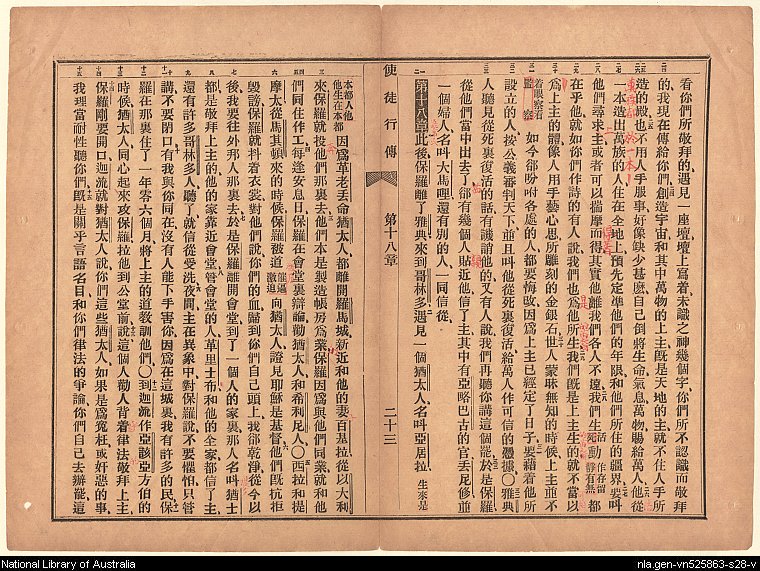 看你們所敬拜的遇見一座壇壇上寫着未識之神幾個字你們所不認識而敬拜
的我現在傳給你們創造宇宙和其中萬物的上主既是天地的主就不住人手所
造的殿也不用人手服事好像缺少甚麼自己倒將生命氣息萬物賜給萬人他從
一本造出萬族的人住在全地上預先定準他們的年限和他們所住的疆界要叫
他們尋求主或者可以揣摩而得其實他離我們各人不遠我們生活動作存留都
在乎他就如你們作詩的有人說我們也爲他所生我們既是上主生的就不當以
爲上主的體像人用手藝心思所雕刻的金銀石世人蒙昧無知的時候上主並不
監察 着眼察看 如今卻吩咐各處的人都要悔改因爲上主已經定了日子要藉着他所
設立的人按公義審判天下並且叫他從死裏復活給萬人作可信的憑據〇雅典
人聽見從死裏復活的話有譏誚他的又有人說我們再聽你講這個罷於是保羅
從他們當中出去了卻有幾個人貼近他信了主其中有亞略巴古的官丟尼修並
一個婦人名叫大馬哩還有別的人一同信從
第十八章此後保羅離了雅典來到哥林多遇見一個猶太人名叫亞居拉 生來是
使徒行傳 第十八章 二十三
本都人他生在本都 因爲革老丟命猶太人都離開羅馬城新近和他的妻百基拉從以大利
來保羅就投他們那裏去他們本是製造帳房爲業保羅因爲與他們同業就和他
們同住作工每逢安息日保羅在會堂裏辯論勸猶太人和希利尼人〇西拉和提
摩太從馬其頓來的時候保羅被道 向猶太人證見耶穌是基督他們既抗拒
毀謗保羅就抖着衣裳對他們說你們的血歸到你們自己頭上我卻乾淨從今以
後我要往外邦人那裏去於是保羅離開會堂到了一個人的家裏那人名叫猶士
都是敬拜上主的他的家靠近會堂管會堂的人革里士布和他的全家都信了主
還有許多哥林多人聽了就信從受洗夜間主在異象中對保羅說不要懼怕只管
講不要閉口有我與你同在沒有人能下手害你因爲在這城裏我有許多的民保
羅在那裏住了一年零六個月將上主的道教訓他們〇到迦流作亞該亞方伯的
時候猶太人同心起來攻保羅拉他到公堂前說這個人勸人背着律法敬拜上主
保羅剛要開口迦流就對猶太人說你們這些猶太人如果是爲冤枉或奸惡的事
我理當耐性聽你們既是關乎言語名目和你們律法的爭論你們自己去辦罷這
National Library of Australia
nla.gen-vn525863-s28-v